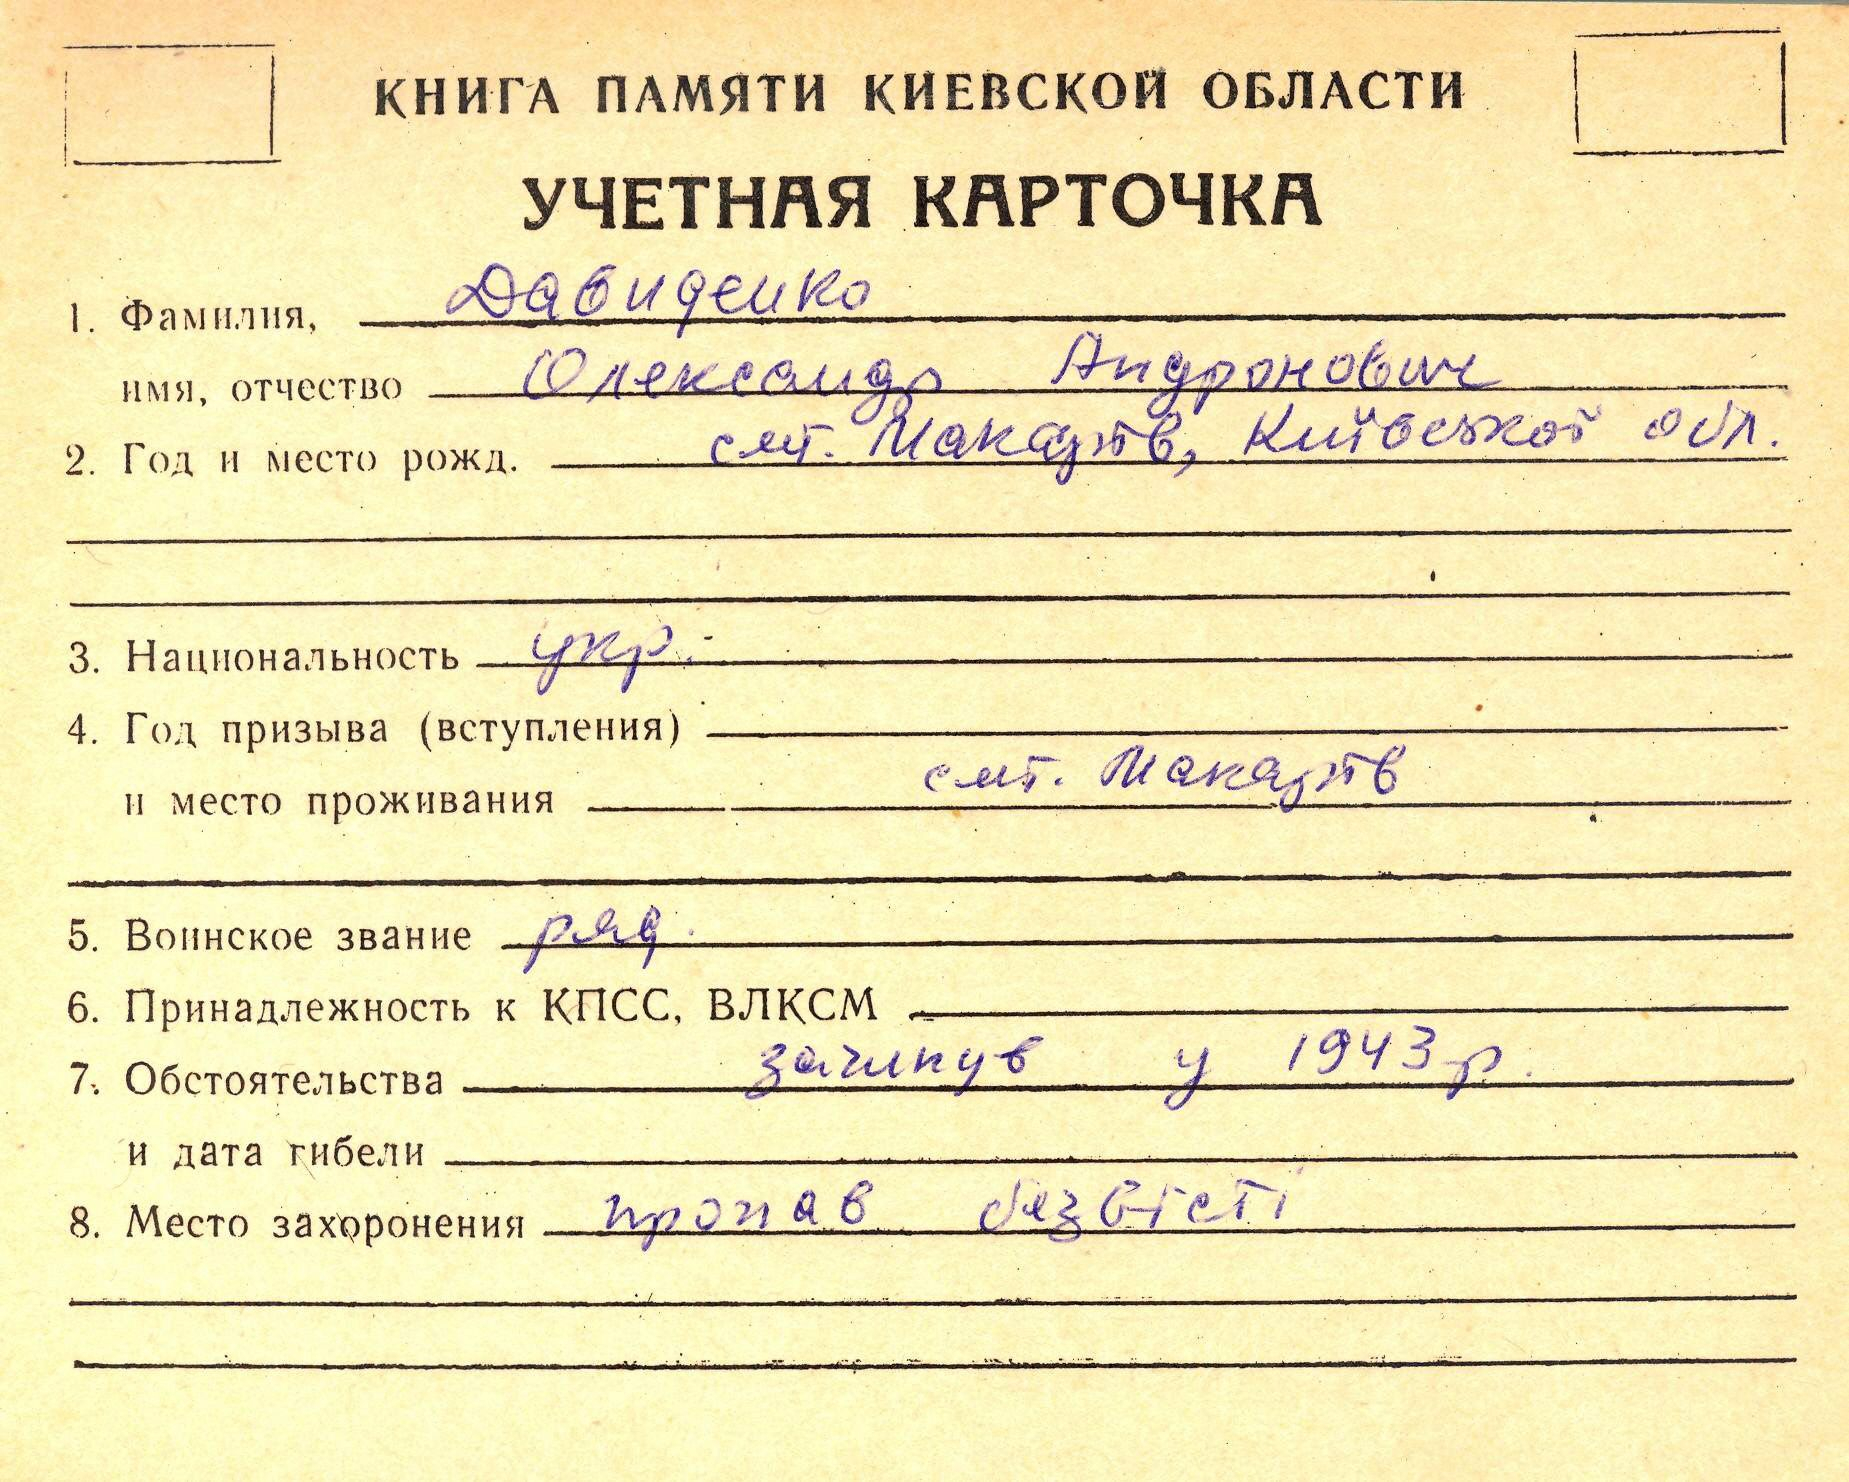 КНИГА ПАМЯТИ КИЕВСКОЙ ОБЛАСТИ
УЧЕТНАЯ КАРТОЧКА
1. Фамилия, Давиденко
имя, отчество Олександр Андронович
2. Год и место рожд. смт. Макарів, Київської обл.
3. Национальность укр.
4. Год призыва (вступления)
и место проживания смт. Макарів
5. Воинское звание ряд.
6. Принадлежность к КПСС, ВЛКСМ
7. Обстоятельства загинув у 1943 р.
и дата гибели
8. Место захоронения пропав безвісті